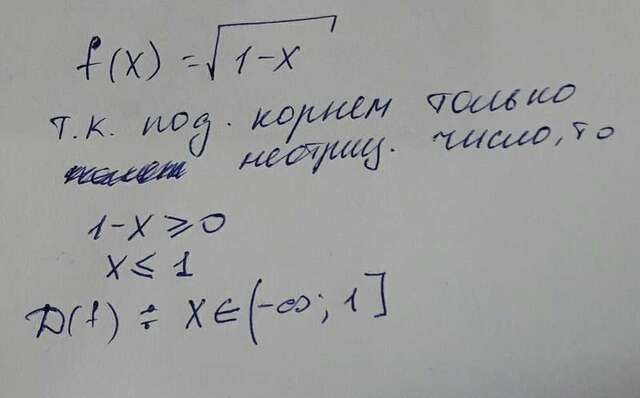 f(x) = √1-x
т.к. под. корнем только
неотриц. число, то
1-x ≥ 0
x ≤ 1
D(f) ÷ x ∈ (-∞; 1]